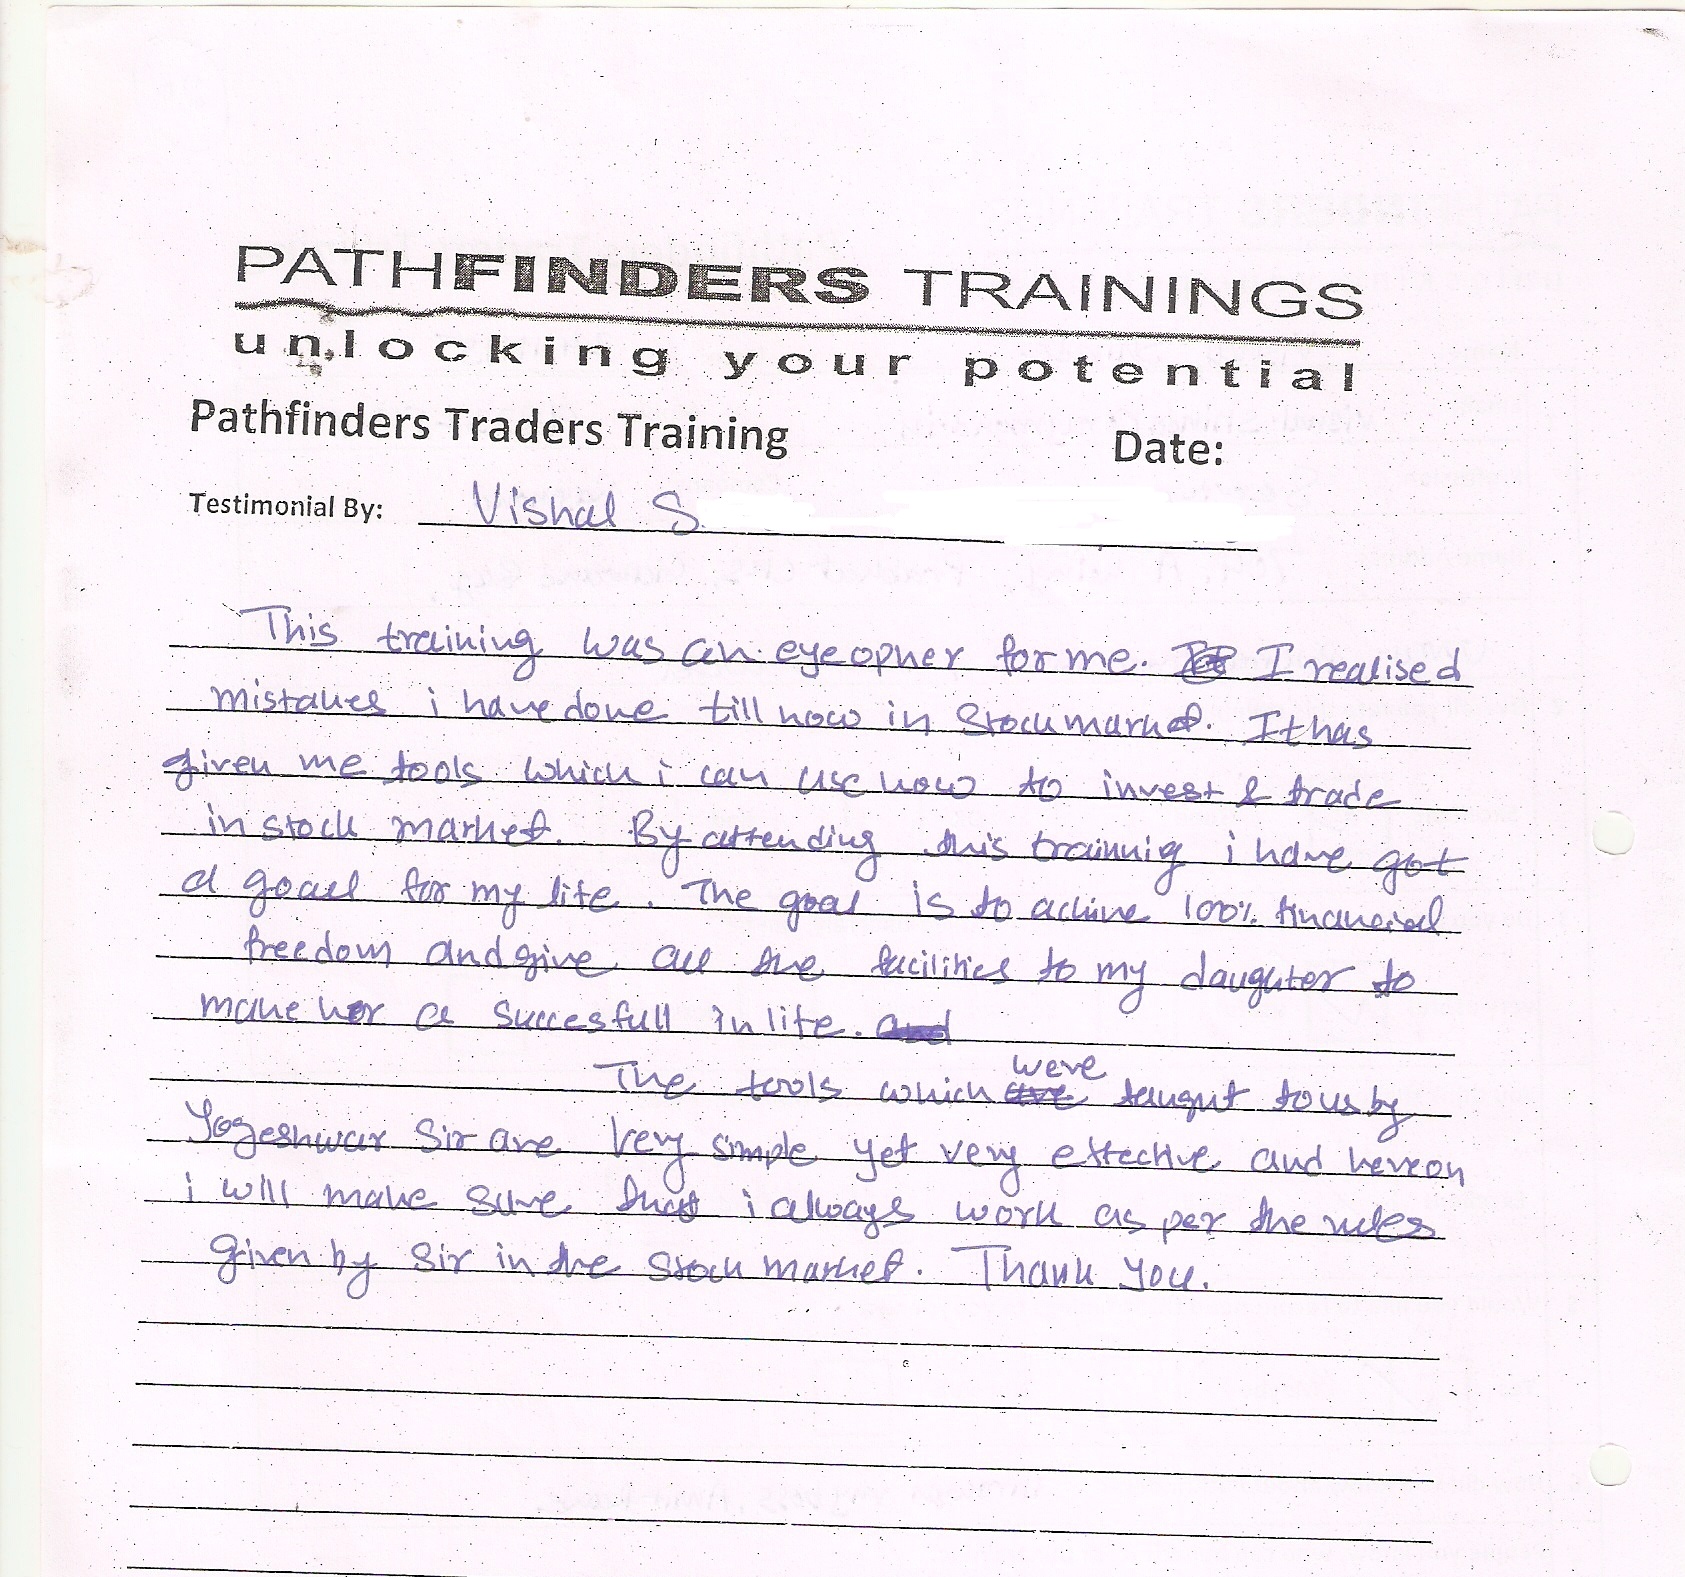 PATHFINDERS TRAININGS
unlocking your potential
Pathfinders Traders Training Date:
Testimonial By: Vishal S.
This training was an eyeopner for me. I realised
mistakes i have done till now in Stock market. It has
given me tools which i can use now to invest & trade
in stock market. By attending this trainnig i have got
a goal for my life. The goal is to achive 100% financial
freedom and give all the facilities to my daughter to
make her a Succesfull in life. and
were
The tools which are taught to us by
Yogeshwar Sir are very simple yet very effective and hereon
i will make sure that i always work as per the rules
given by Sir in the Stock market. Thank you.